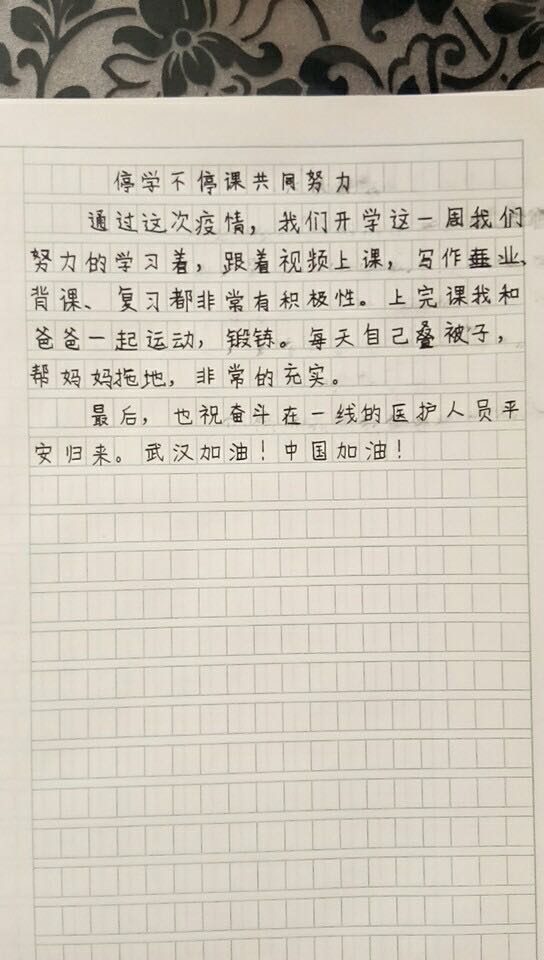 停学不停课共同努力
通过这次疫情，我们开学这一周我们
努力的学习着，跟着视频上课，写作业、
背课、复习都非常有积极性。上完课我和
爸爸一起运动，锻铩。每天自己叠被子，
帮妈妈拖地，非常的充实。
最后，也祝奋斗在一线的医护人员平
安归来。武汉加油！中国加油！